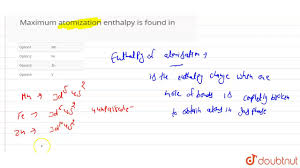 Maximum atomization enthalpy is found in
Enthalpy of atomisation →
is the enthalpy change when one
mole of bonds is completely broken
to obtain atoms in gas phase
Mn → 3d⁵ 4s²
Fe → 3d⁶ 4s² 4 unpaired e⁻
Zn → 3d¹⁰ 4s²
doubtnut